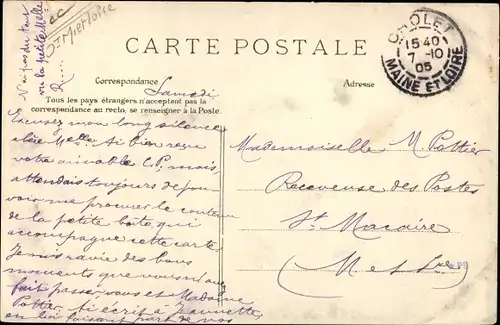 N'ai pas du tout
vu la petite Melle
CARTE POSTALE
CHOLET
15 40
7 -10
05
MAINE ET LOIRE
Correspondance
Adresse
Samedi
Tous les pays étrangers n'acceptent pas la
correspondance au recto, se renseigner à la Poste.
Excusez mon long silence
chère Melle. Ai bien reçu
votre aimable C.P., mais
attendais toujours de pou-
voir me procurer le contenu
de la petite boîte qui
accompagne cette carte.
Je suis ravie des bons
moments que vous m'avez
fait passer, vous et Madame
Pottier. Ai écrit à Jeannette
en lui faisant part de vos
Mademoiselle M. Pottier
Receveuse des Postes
St. Macaire
(M. et Lre)